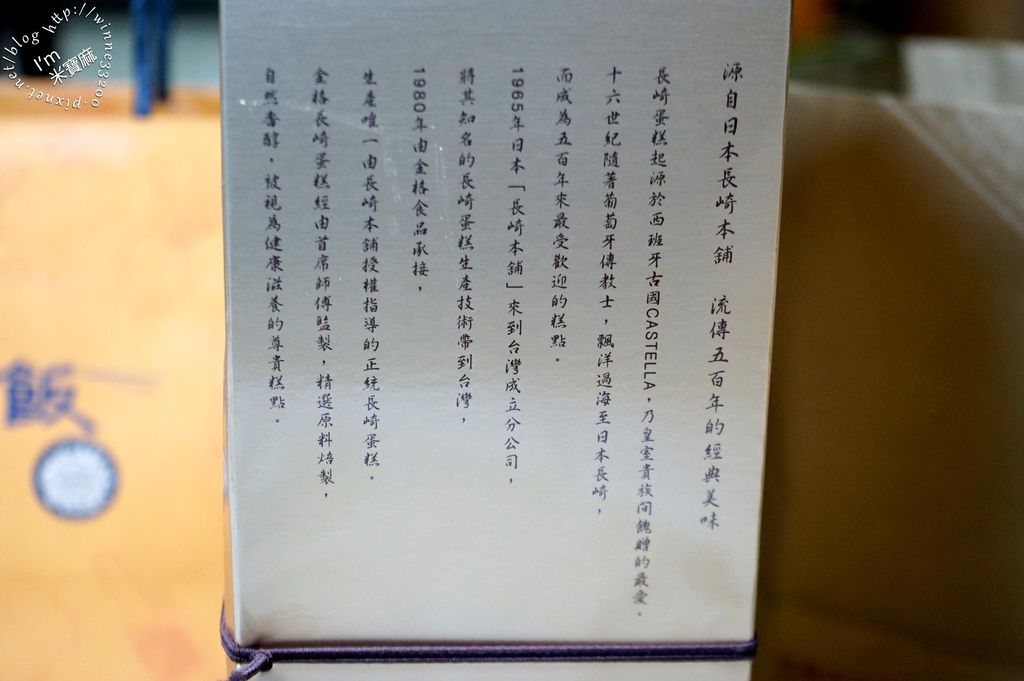 源自日本長崎本舖 流傳五百年的經典美味
長崎蛋糕起源於西班牙古國CASTELLA，乃皇室貴族間餽贈的最愛．
十六世紀隨著葡萄牙傳教士，飄洋過海至日本長崎，
而成為五百年來最受歡迎的糕點。
1965年日本「長崎本舖」來到台灣成立分公司，
將其知名的長崎蛋糕生產技術帶到台灣，
1980年由金格食品承接，
生產唯一由長崎本舖授權指導的正統長崎蛋糕。
金格長崎蛋糕經由首席師傅監製，精選原料焙製，
自然香醇，被視為健康滋養的尊貴糕點。
飯
http://winne3200.pixnet.net/blog
I'm
米寶麻